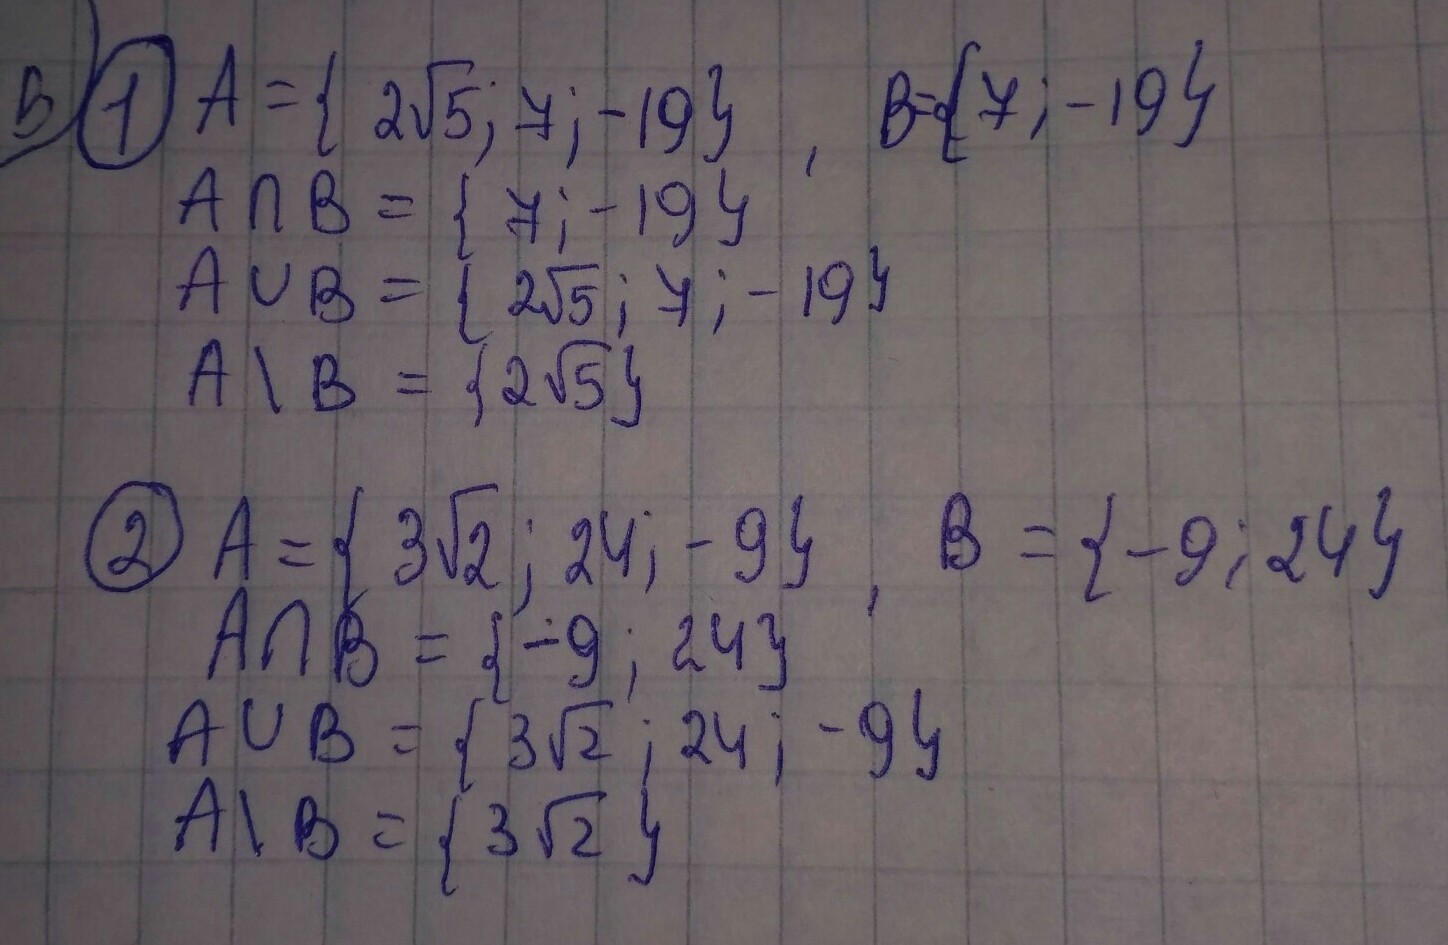 В) 1 A = { 2√5; 7; -19} , B={7; -19}
A ∩ B = { 7; -19}
A ∪ B = { 2√5; 7; -19}
A \ B = {2√5}
2 A = { 3√2; 24; -9} , B = {-9; 24}
A ∩ B = {-9; 24}
A ∪ B = { 3√2; 24; -9}
A \ B = { 3√2 }